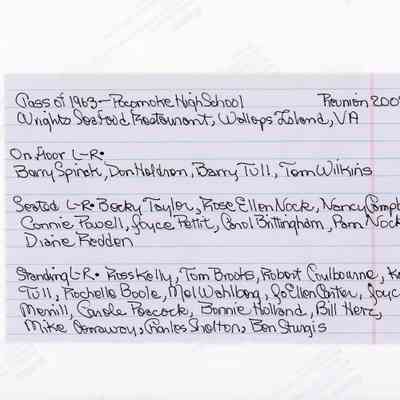 Class of 1963 - Pocomoke High School Reunion 200
Wrights Seafood Restaurant, Wallops Island, VA
On floor L-R.
Barry Spinak, Don Holdren, Barry Tull, Tom Wilkins
Seated L-R. Becky Taylor, Rose Ellen Nock, Nancy Campb
Connie Powell, Joyce Pettit, Carol Brittingham, Pam Nock
Diane Redden
Standing L-R. Ross Kelly, Tom Brooks, Robert Coulbourne, K
Tull, Rochelle Boole, Mel Wahlberg, JoEllen Carter, Joyc
Merrill, Carole Peacock, Bonnie Holland, Bill Herz,
Mike Conaway, Charles Shelton, Ben Sturgis